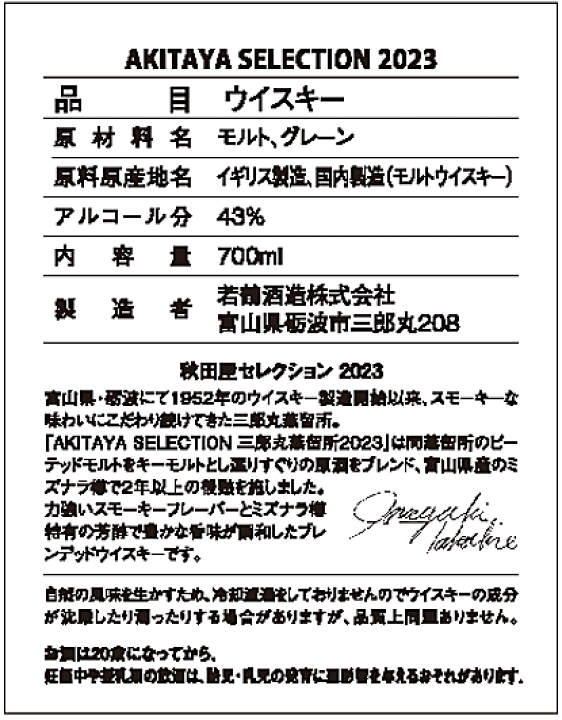 AKITAYA SELECTION 2023
品目 ウイスキー
原材料名 モルト、グレーン
原料原産地名 イギリス製造、国内製造(モルトウイスキー)
アルコール分 43%
内容量 700ml
製造者 若鶴酒造株式会社
富山県砺波市三郎丸208
秋田屋セレクション 2023
富山県・砺波にて1952年のウイスキー製造開始以来、スモーキーな
味わいにこだわり続けてきた三郎丸蒸留所。
「AKITAYA SELECTION 三郎丸蒸留所2023」は同蒸留所のピー
テッドモルトをキーモルトとし選りすぐりの原酒をブレンド、富山県産のミ
ズナラ樽で2年以上の後熟を施しました。
力強いスモーキーフレーバーとミズナラ樽
特有の芳醇で豊かな香味が調和したブレ
ンデッドウイスキーです。
Inagaki
Takahiko
自然の風味を生かすため、冷却濾過をしておりませんのでウイスキーの成分
が沈殿したり濁ったりする場合がありますが、品質上問題ありません。
お酒は20歳になってから。
妊娠中や授乳期の飲酒は、胎児・乳児の発育に悪影響を与えるおそれがあります。